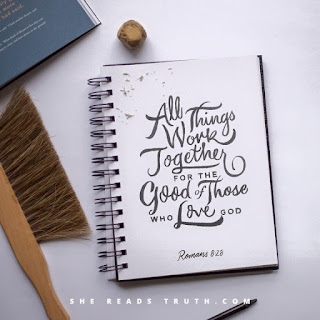 All Things
Work
Together
FOR THE
Good of Those
WHO Love GOD
Romans 8:28
SHE READS TRUTH.COM